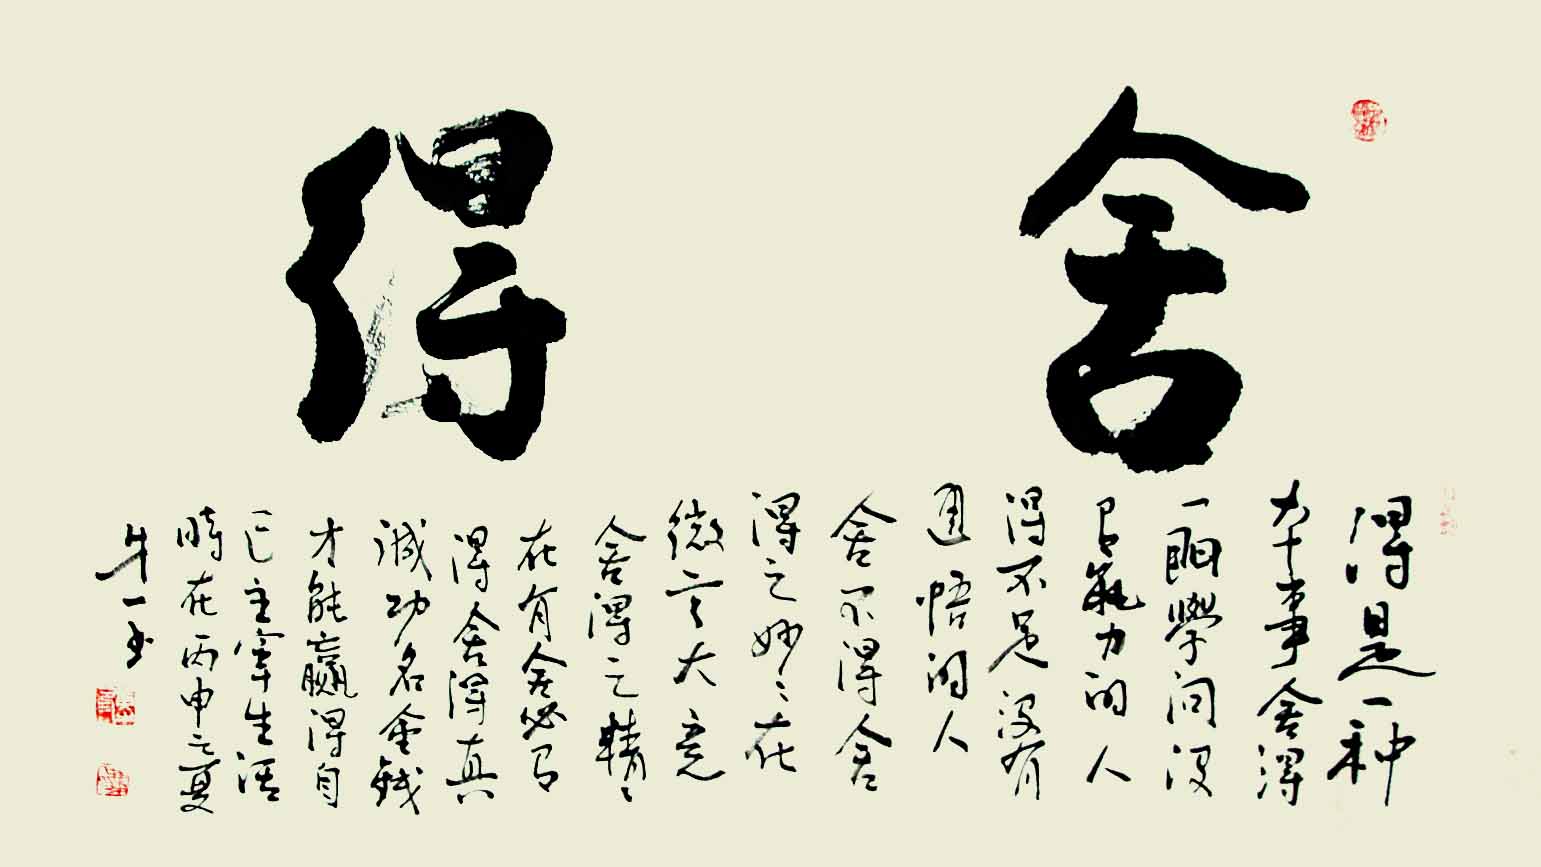 舍得
得是一种
本事舍得
一門學问没
有能力的人
得不足没有
通悟的人
舍不得舍
得之妙々在
微言大意
舍得之精々
在有舍必有
得舍得真
诚功名金钱
才能赢得自
己主宰生活
時在丙申之夏
牛一书